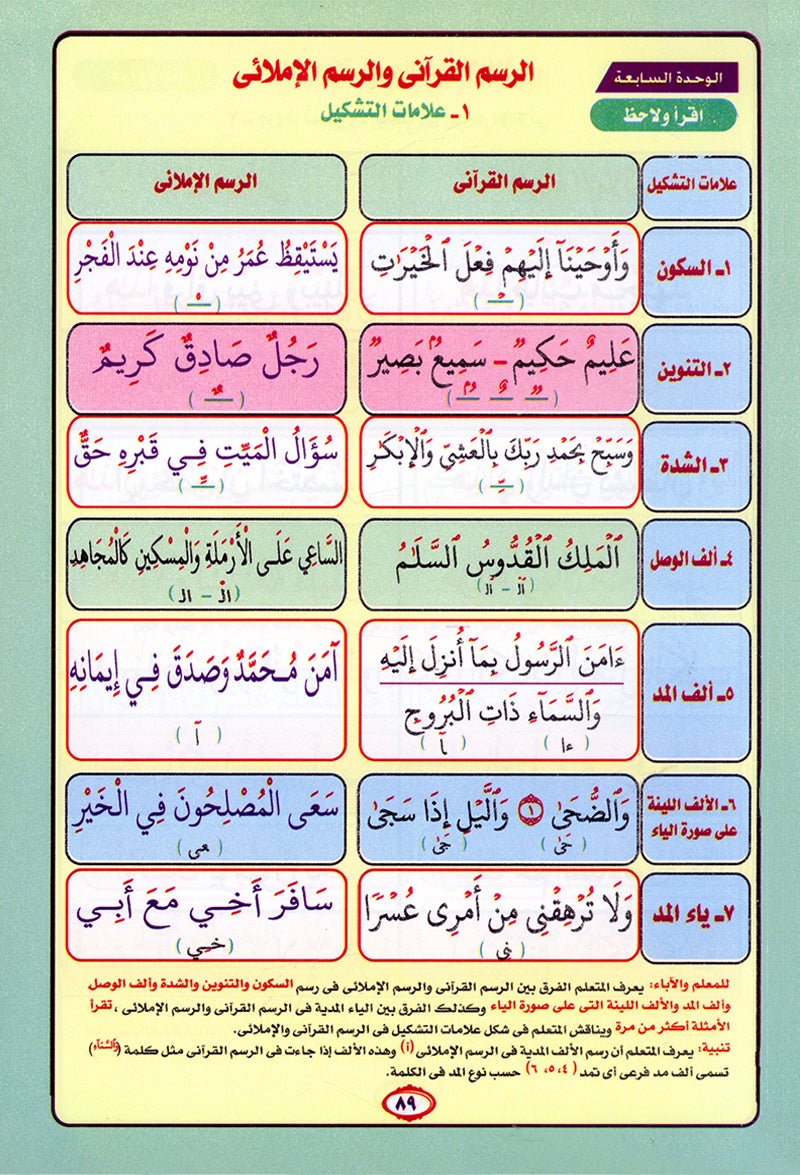 الوحدة السابعة
الرسم القرآنى والرسم الإملائى
اقرأ ولاحظ
١ـ علامات التشكيل
علامات التشكيل
الرسم القرآنى
الرسم الإملائى
١ـ السكون
وَأَوْحَيْنَآ إِلَيْهِمْ فِعْلَ ٱلْخَيْرَٰتِ
يَسْتَيْقِظُ عُمَرُ مِنْ نَوْمِهِ عِنْدَ الْفَجْرِ
٢ـ التنوين
عَلِيمٌ حَكِيمٌ – سَمِيعٌۢ بَصِيرٌ
رَجُلٌ صَادِقٌ كَرِيمٌ
٣ـ الشدة
وَسَبِّحْ بِحَمْدِ رَبِّكَ بِٱلْعَشِىِّ وَٱلْإِبْكَٰرِ
سُؤَالُ الْمَيِّتِ فِي قَبْرِهِ حَقٌّ
٤ـ ألف الوصل
ٱلْمَلِكُ ٱلْقُدُّوسُ ٱلسَّلَٰمُ
(ٱلْ – ٱل)
السَّاعِي عَلَى الْأَرْمَلَةِ وَالْمِسْكِينِ كَالْمُجَاهِدِ
(الْ – ال)
٥ـ ألف المد
ءَامَنَ ٱلرَّسُولُ بِمَآ أُنزِلَ إِلَيْهِ
وَٱلسَّمَآءِ ذَاتِ ٱلْبُرُوجِ
(ءا) (مآ)
آمَنَ مُحَمَّدٌ وَصَدَقَ فِي إِيمَانِهِ
(آ)
٦ـ الألف اللينة
على صورة الياء
وَٱلضُّحَىٰ ١ وَٱلَّيْلِ إِذَا سَجَىٰ
(حَىٰ) (جَىٰ)
سَعَى الْمُصْلِحُونَ فِي الْخَيْرِ
(عى)
٧ـ ياء المد
وَلَا تُرْهِقْنِى مِنْ أَمْرِى عُسْرًا
(نى)
سَافَرَ أَخِي مَعَ أَبِي
(خي)
للمعلم والآباء: يعرف المتعلم الفرق بين الرسم القرآنى والرسم الإملائى فى رسم السكون والتنوين والشدة وألف الوصل
وألف المد والألف اللينة التى على صورة الياء وكذلك الفرق بين الياء المدية فى الرسم القرآنى والرسم الإملائى ، تقرأ
الأمثلة أكثر من مرة ويناقش المتعلم فى شكل علامات التشكيل فى الرسم القرآنى والإملائى.
تنبية: يعرف المتعلم أن رسم الألف المدية فى الرسم الإملائى (آ) وهذه الألف إذا جاءت فى الرسم القرآنى مثل كلمة (وَٱلسَّمَآءِ)
تسمى ألف مد فرعى أى تمد (٤، ٥، ٦) حسب نوع المد فى الكلمة.
٨٩